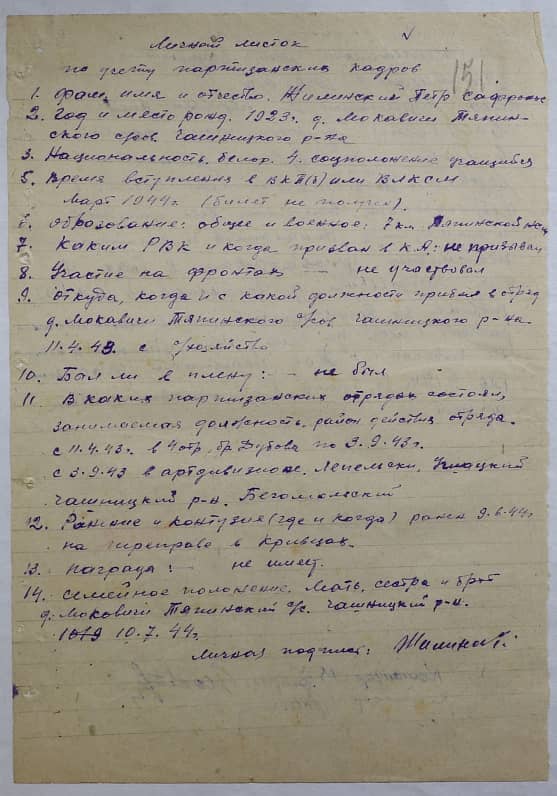 Личный листок
по учету партизанских кадров
151
1. Фам. имя и отчество. Жилинский Петр Сафронов
2. Год и место рожд. 1923г. д. Мокавичи Тяпин-
ского с/сов. Чашницкого р-на
3. Национальность. белор. 4. соцположение учащийся
5. Время вступления в ВКП(б) или ВЛКСМ
март 1944г (билет не получ.).
6. Образование: общее и военное: 7 кл. Тяпинской
7. Каким РВК и когда призван в К.А: не призывал
8. Участие на фронтах — не участвовал
9. Откуда, когда и с какой должности прибыл в отряд
д. Мокавичи Тяпинского с/сов Чашницкого р-на.
11.4.43. с с/хозяйство
10. Был ли в плену: — не был
11. В каких партизанских отрядах состоял,
занимаемая должность, район действия отряда.
с 11.4.43г. в 4 отр, бр. Дубова по 3.9.43г.
с 3.9.43 в артдивизионе. Лепельски, Ушацкий
Чашницкий р-н. Бегомльский
12. Ранение и контузия (где и когда) ранен 9.6.44г.
на переправе в Кривцах.
13. Награда: — не имеет.
14. Семейное положение. Мать, сестра и брат
д. Мокавичи Тяпинский с/с. Чашницкий р-н.
10.7.44г.
личная подпись: